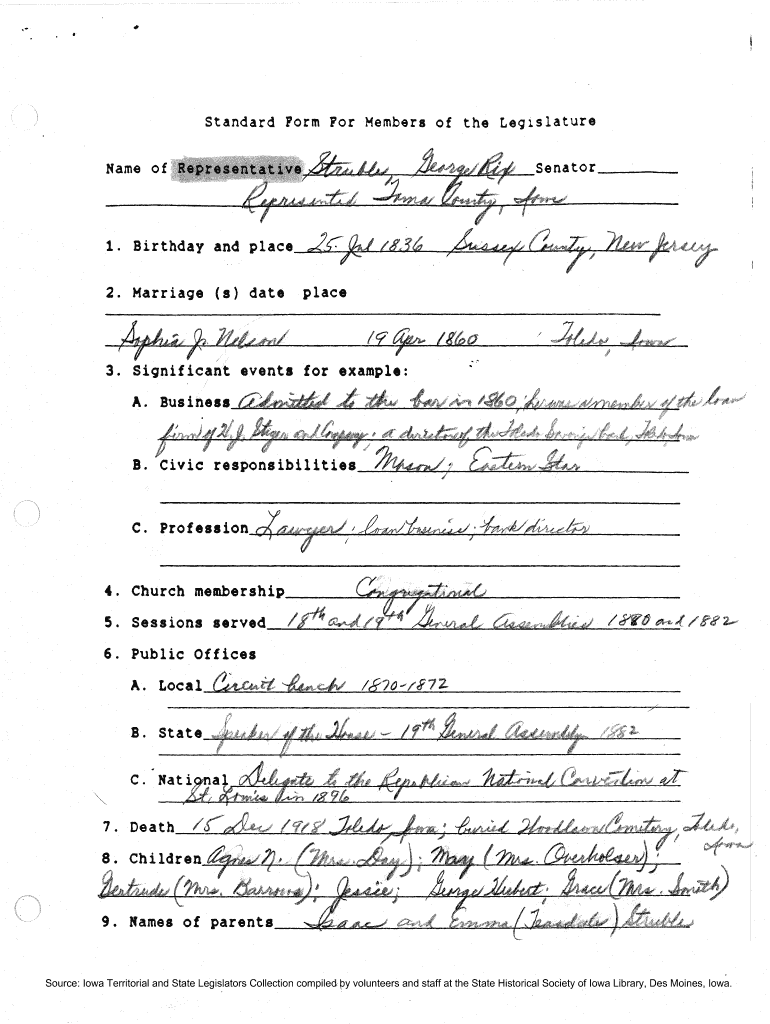 Standard Form For Members of the Legislature
Name of Representative Struble, George Rix Senator
Represented Tama County, Iowa
1. Birthday and place 25 Jul 1836 Sussex County, New Jersey
2. Marriage (s) date place
Sophia J. Nelson 19 Apr 1860 Toledo, Iowa
3. Significant events for example:
A. Business Admitted to the bar in 1860; he was a member of the loan
firm of H. J. Stiger and Company; a director of the Toledo Savings bank, Toledo, Iowa
B. Civic responsibilities Mason; Eastern Star
C. Profession Lawyer; loan business; bank director
4. Church membership Congregational
5. Sessions served 18th and 19th General Assemblies 1880 and 1882
6. Public Offices
A. Local Circuit bench 1870-1872
B. State Speaker of the House - 19th General Assembly 1882
C. National Delegate to the Republican National Convention at
St. Louis in 1896
7. Death 15 Dec 1918 Toledo, Iowa; buried Woodlawn Cemetery, Toledo,
Iowa
8. Children Agnes N. (Mrs. Day); May (Mrs. Overholser);
Gertrude (Mrs. Barrows); Jessie; George Hubert; Grace (Mrs. Smith)
9. Names of parents Isaac and Emma (Teasdale) Struble
Source: Iowa Territorial and State Legislators Collection compiled by volunteers and staff at the State Historical Society of Iowa Library, Des Moines, Iowa.